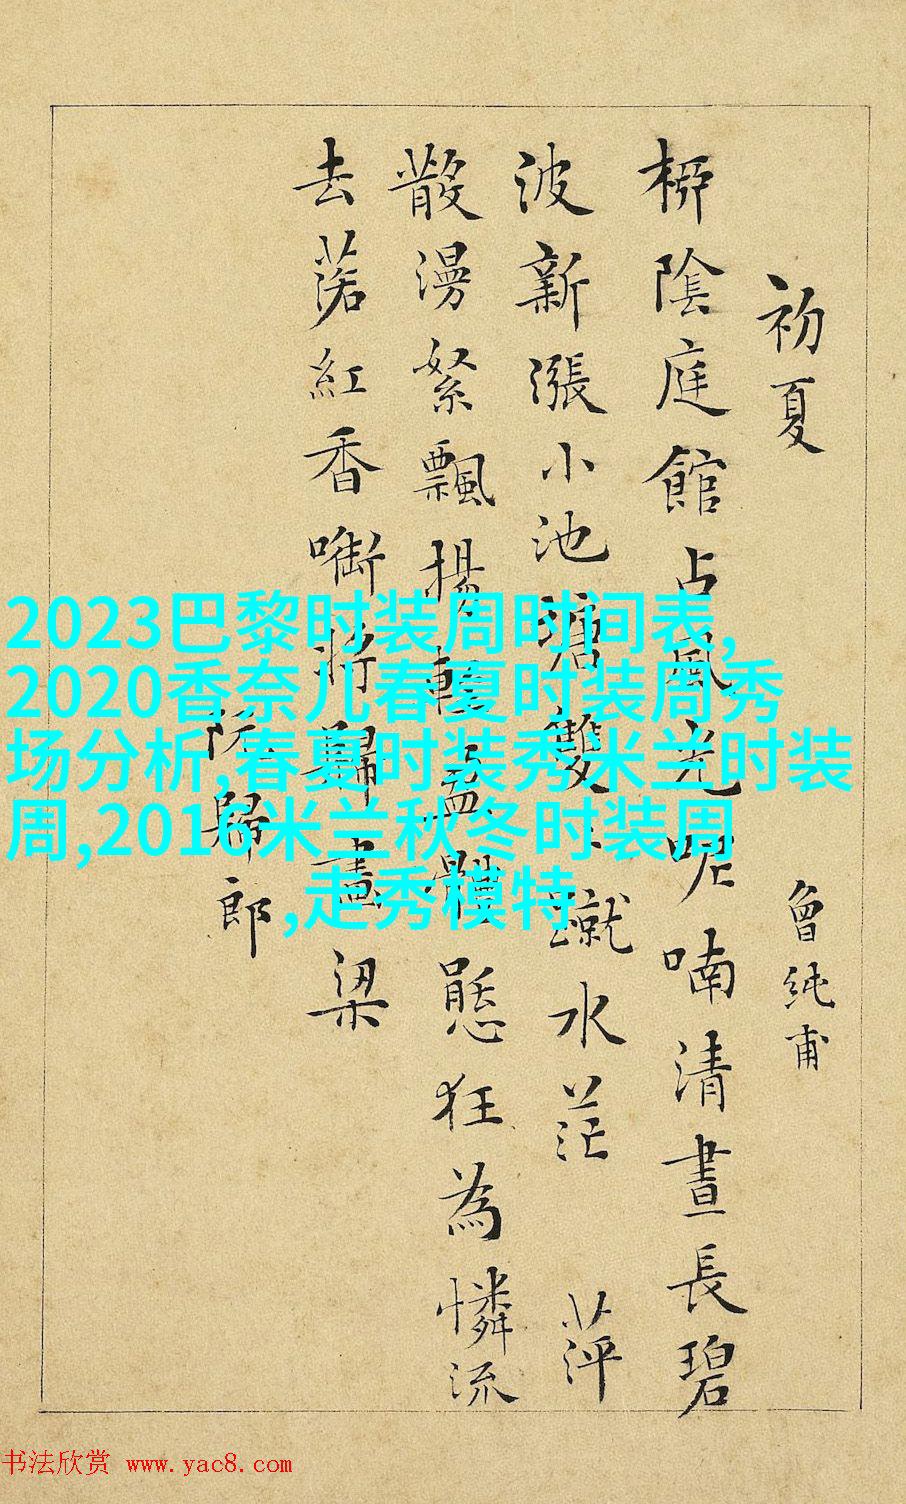 初夏 曾純甫
桺陰庭館占風光呢喃清晝長碧
波新漲小池塘雙〻蹴水茫 萍
散漫絮飄揚輕盈體態狂為憐流
去落紅香啣將歸畫梁
阮歸郎
2023巴黎时装周时间表,
2020香奈儿春夏时装周秀
场分析,春夏时装秀米兰时装
周,2016米兰秋冬时装周
,走秀模特
书法欣赏 www.yac8.com